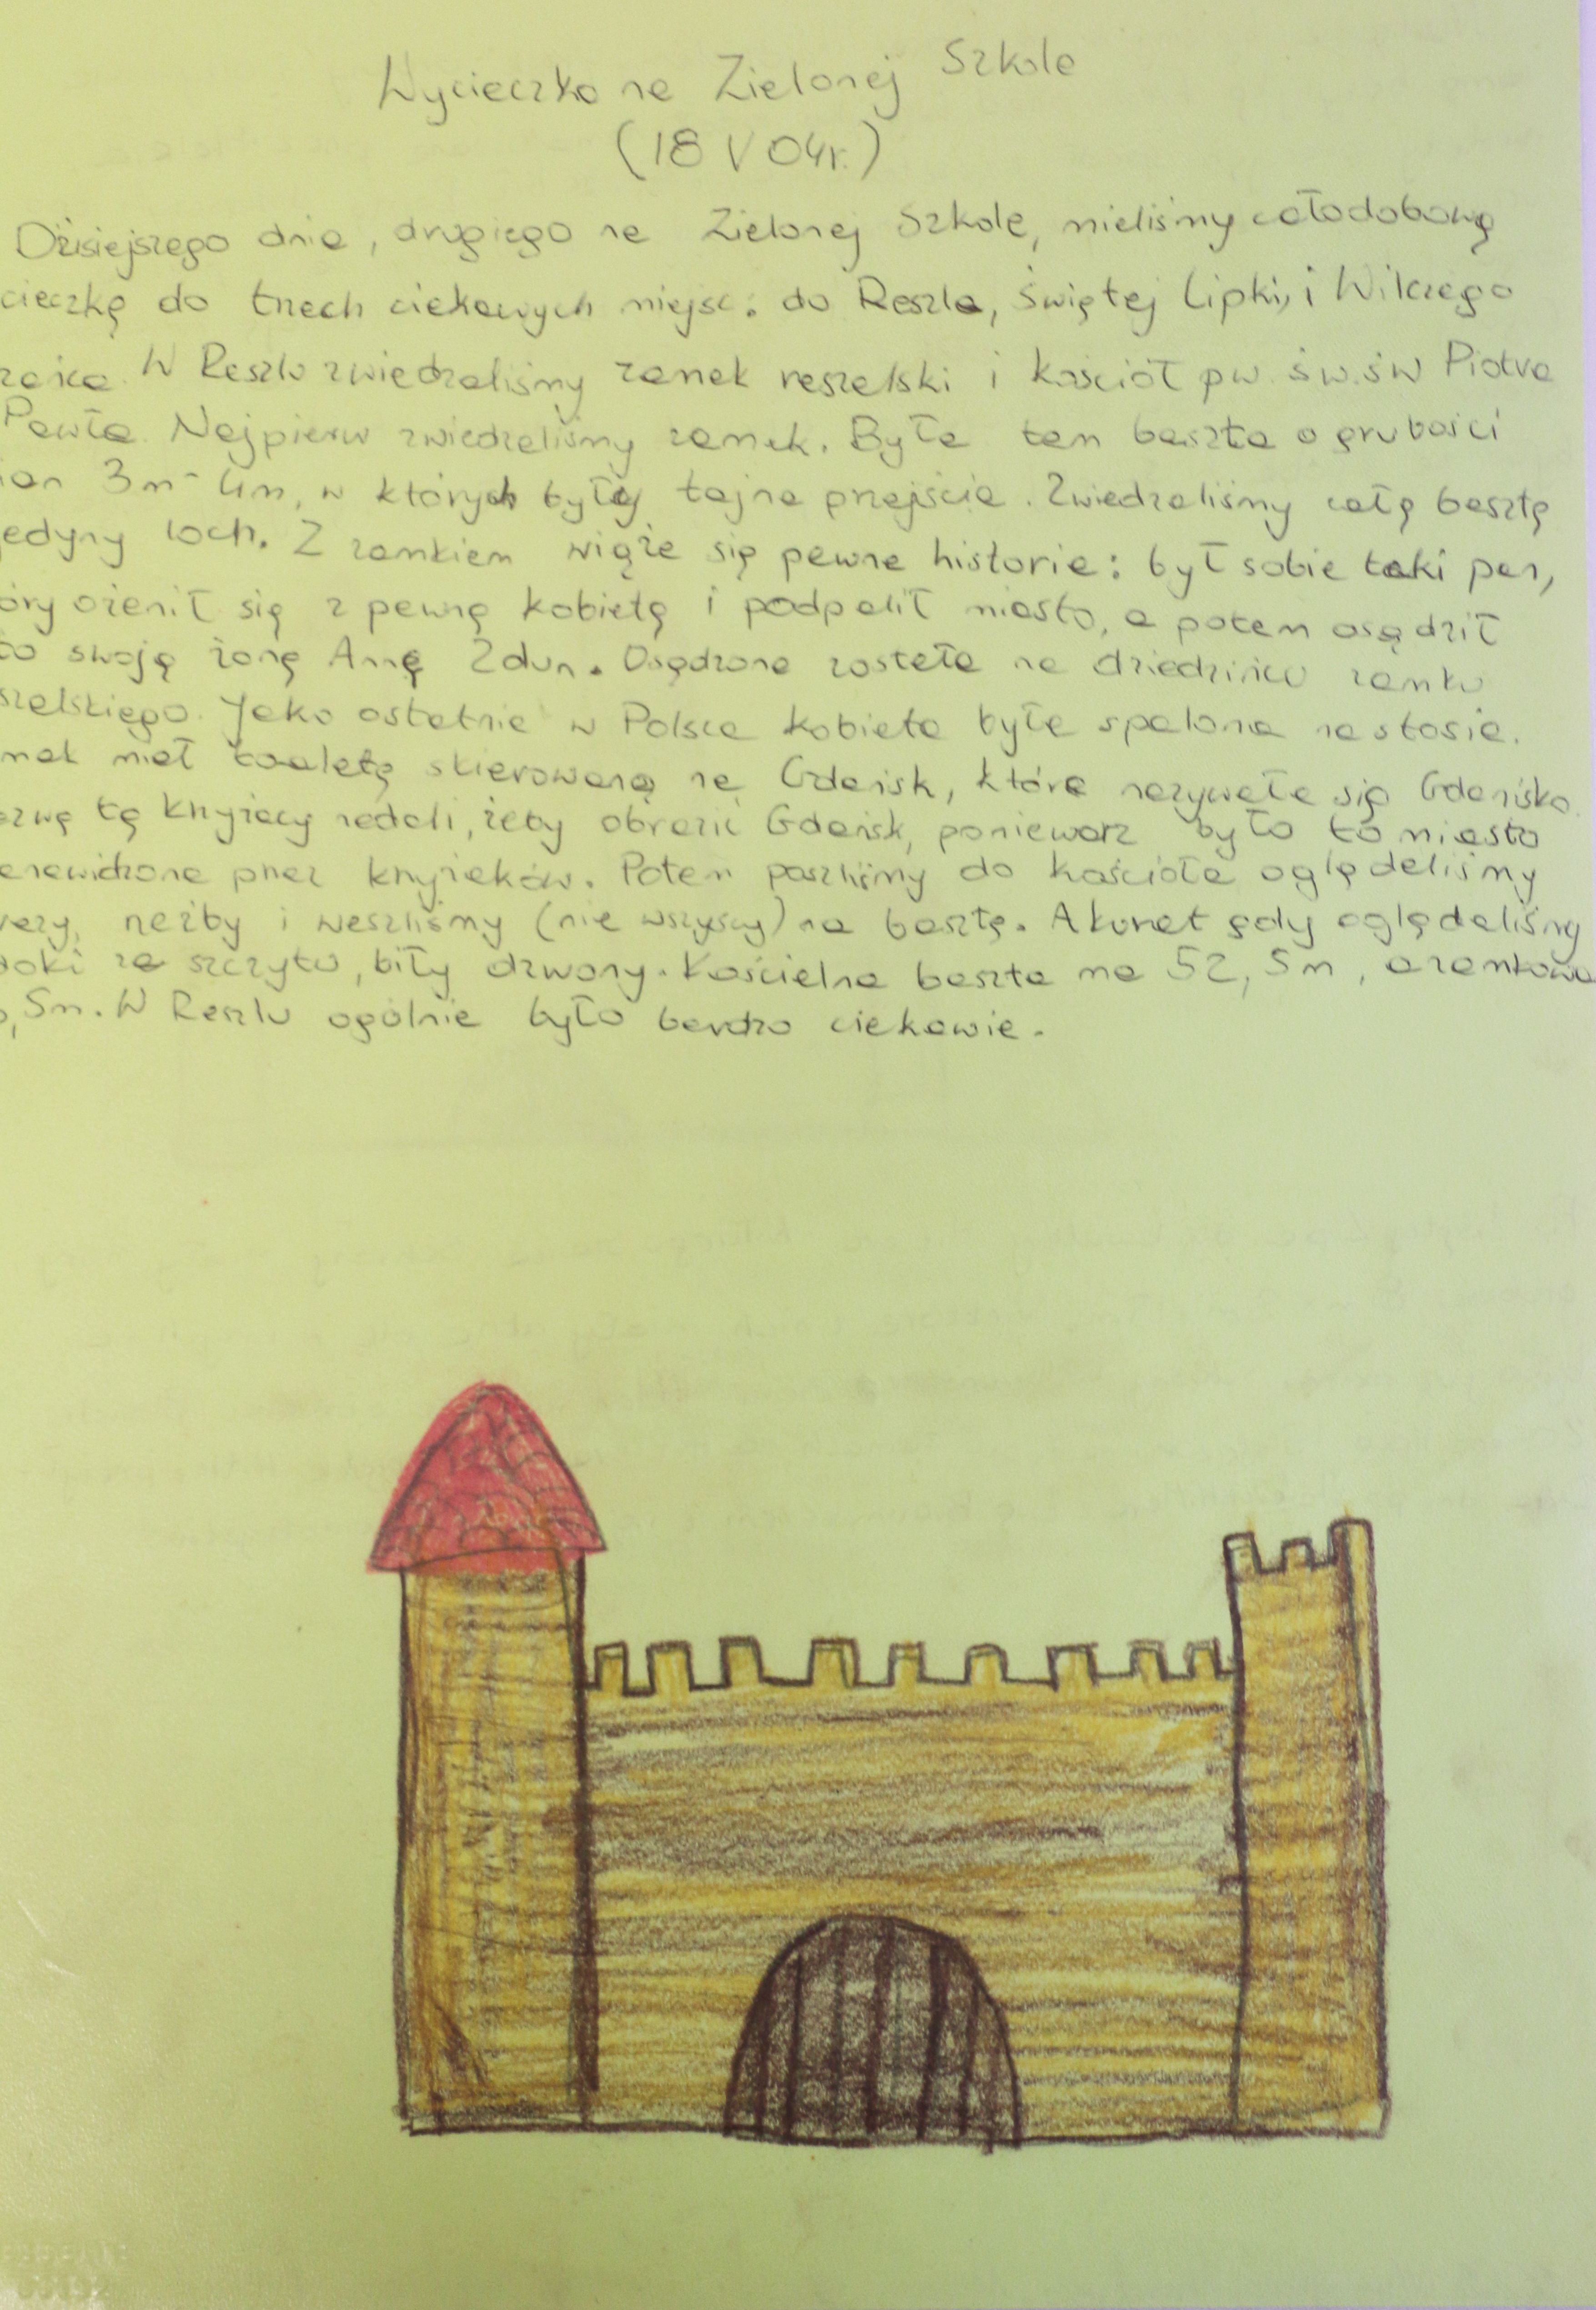 Wycieczka na Zielonej Szkole
(18 V 04r.)
Dzisiejszego dnia, drugiego na Zielonej Szkole, mieliśmy całodobową
cieczkę do trzech ciekawych miejsc: do Reszla, Świętej Lipki, i Wilczego
zańca. W Reszlu zwiedzaliśmy zamek reszelski i kościół pw. św.św Piotra
Pawła. Najpierw zwiedzaliśmy zamek. Była tam baszta o grubości
ian 3m-4m, w których były tajne przejścia. Zwiedzaliśmy całą basztę
jedyny loch. Z zamkiem wiąże się pewna historia: był sobie taki pan,
óry ożenił się z pewną kobietą i podpalił miasto, a potem osądził
to swoją żonę Annę Zdun. Osądzona została na dziedzińcu zamku
szelskiego. Jako ostatnia w Polsce kobieta była spalona na stosie.
mek miał toaletę skierowaną na Gdańsk, która nazywała się Gdanisko.
azwę tę krzyżacy nadali, żeby obrazić Gdańsk, ponieważ było to miasto
enawidzone przez krzyżaków. Potem poszliśmy do kościoła oglądaliśmy
razy, rzeźby i weszliśmy (nie wszyscy) na basztę. Akurat gdy oglądaliśmy
doki ze szczytu, biły dzwony. Kościelna baszta ma 52,5m, a zamkowa
,5m. W Reszlu ogólnie było bardzo ciekawie.